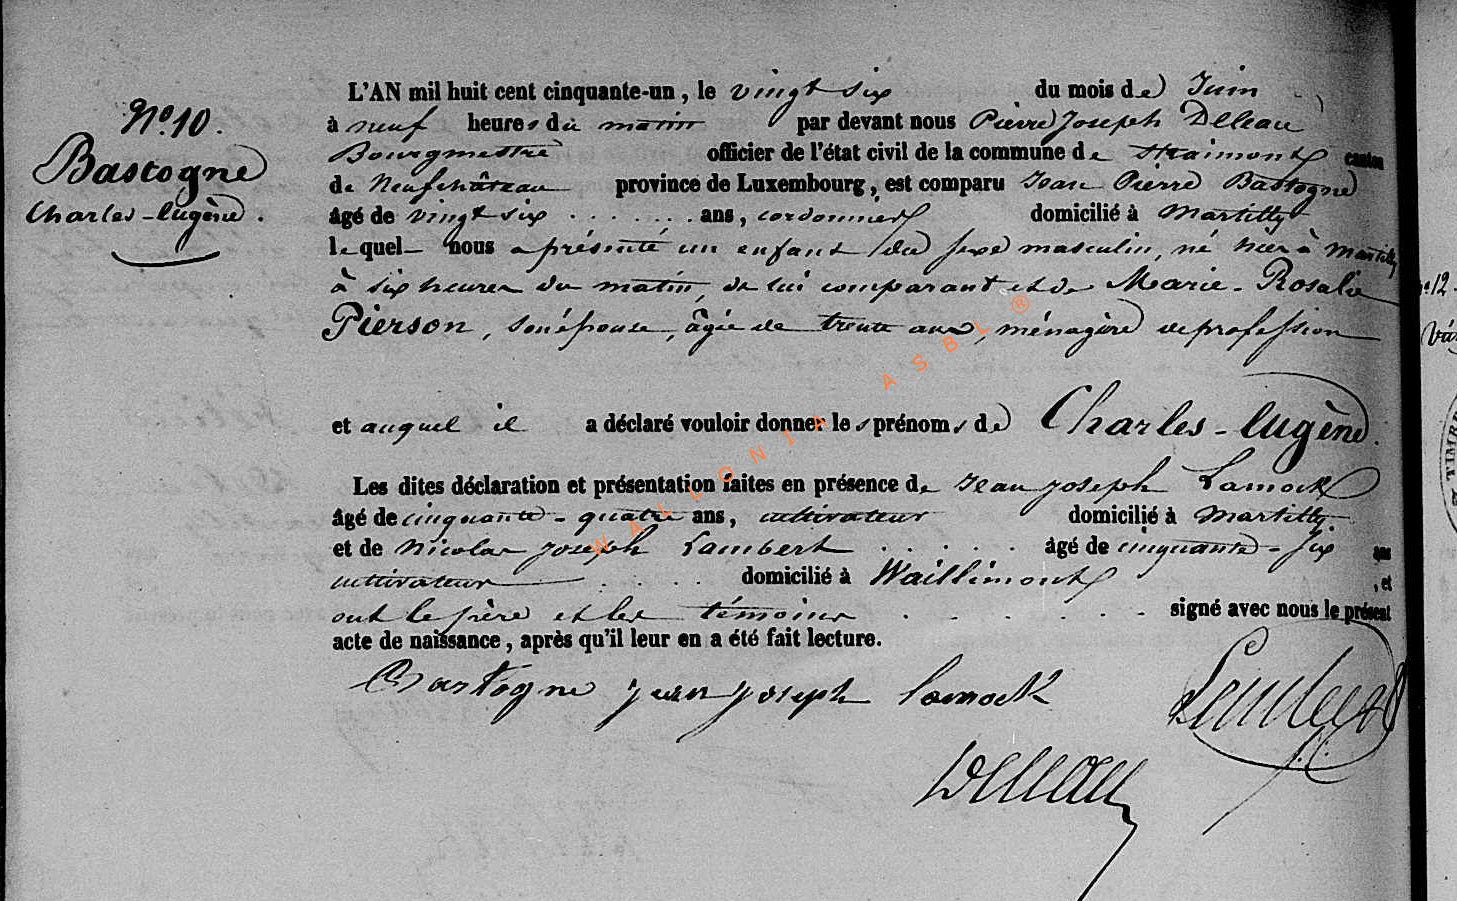 N.° 10.
Bastogne
Charles-Eugène.
L'AN mil huit cent cinquante-un, le vingt six du mois de Juin
à neuf heures du matin par devant nous Pierre Joseph Delleau
Bourgmestre officier de l'état civil de la commune de Straimont canton
de Neufchâteau province de Luxembourg, est comparu Jean Pierre Bastogne
âgé de vingt six ans, cordonnier domicilié à Martilly
lequel nous a présenté un enfant du sexe masculin, né hier à Martilly
à six heures du matin, de lui comparant et de Marie-Rosalie
Pierson, son épouse, âgée de trente ans, ménagère de profession
et auquel il a déclaré vouloir donner les prénoms de Charles-Eugène.
Les dites déclaration et présentation faites en présence de Jean Joseph Lamock
âgé de cinquante-quatre ans, cultivateur domicilié à Martilly.
et de Nicolas Joseph Lambert âgé de cinquante-six ans
cultivateur domicilié à Waillimont, et
ont le père et les témoins signé avec nous le présent
acte de naissance, après qu'il leur en a été fait lecture.
Bastogne jean joseph lamock Lambert
Delleau
WALLONIA ASBL ®
n.° 12.
TIMBRE